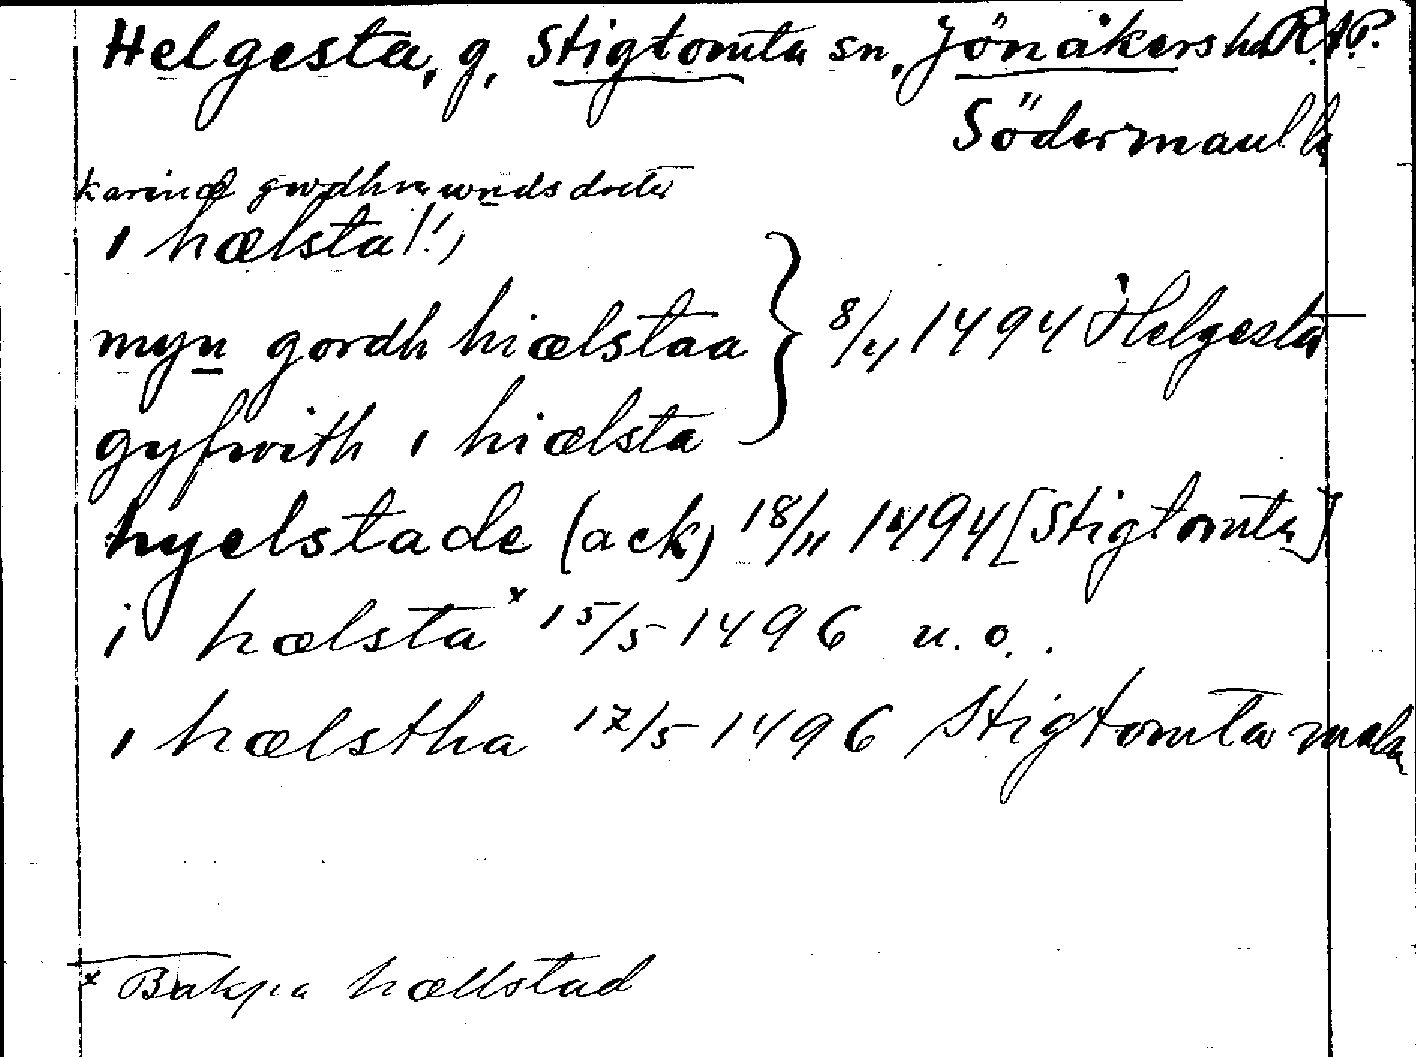 Helgesta, g, Stigtomta sn, Jönåkers hd R.A.P.
Södermanl. l.
karinæ gudhmundsdoter
i hælsta (!),
myn gordh hiælstaa } 8/4 1494 Helgesta
gyfwith i hiælsta
hyelstade (ack) 18/11 1494 [Stigtomta]
i hælsta x 15/5 1496 u.o.
i hælstha 17/5 1496 Stigtomta
x Bakpå hællstad